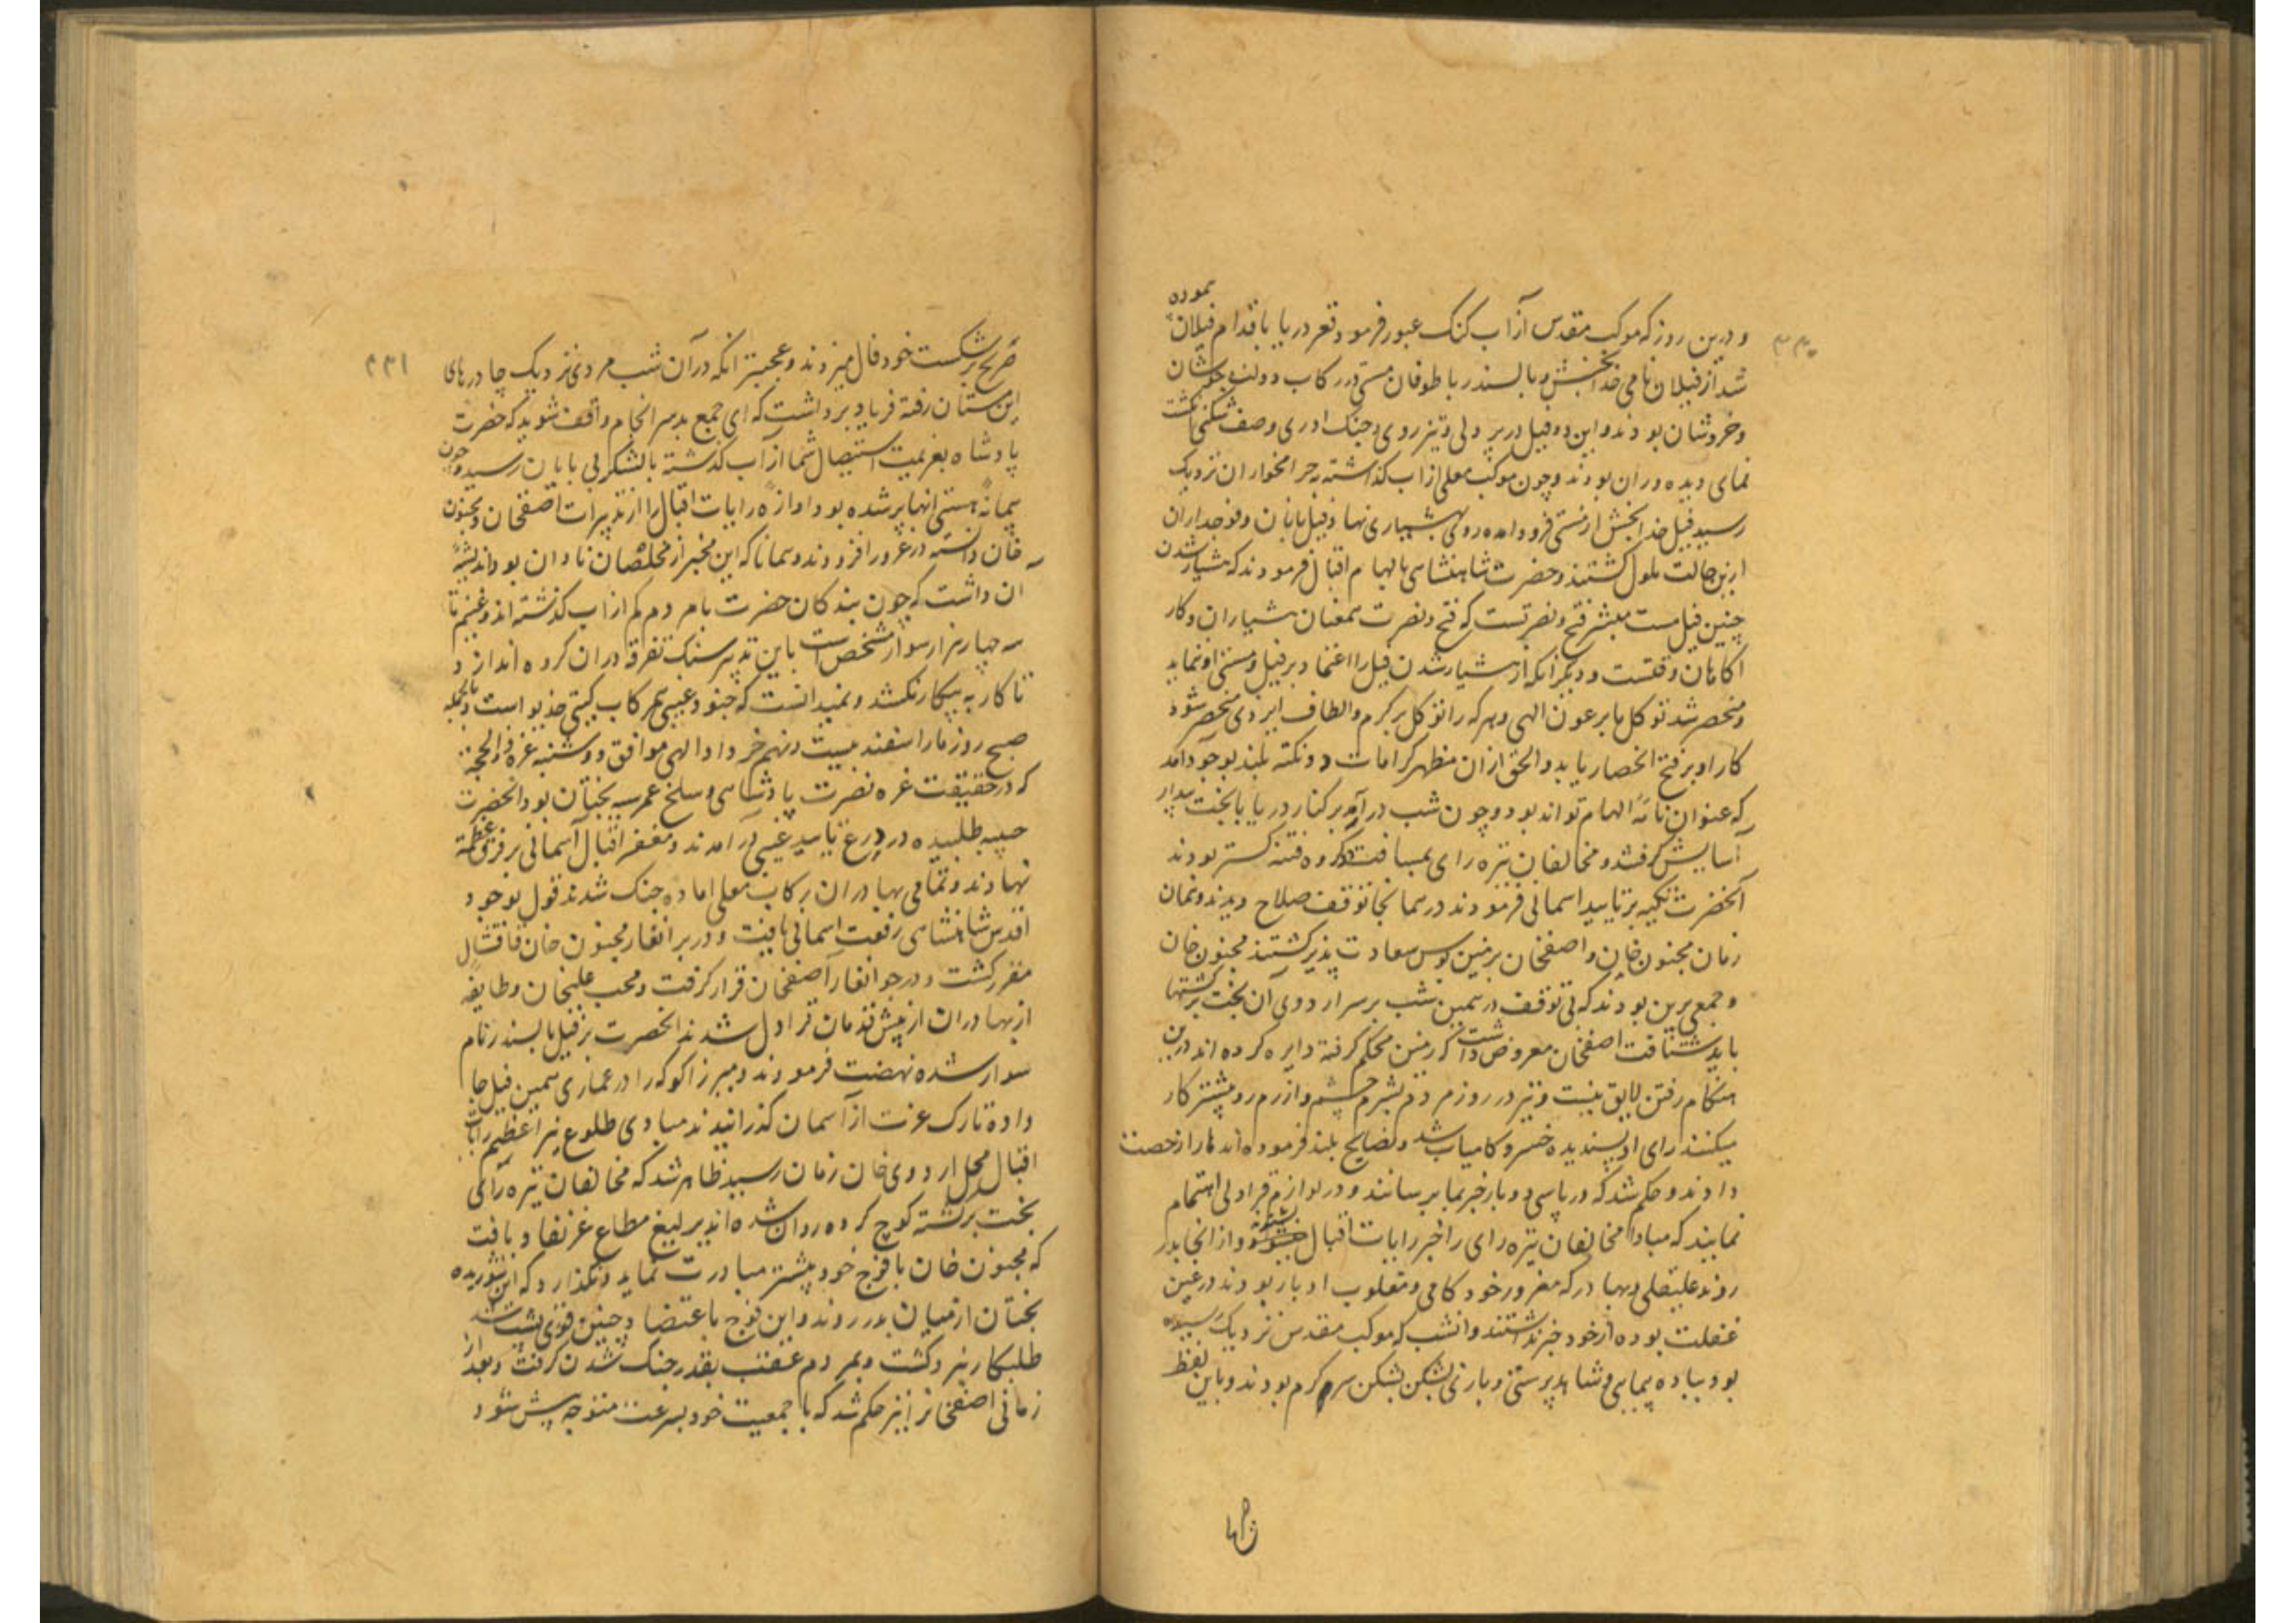 ۳۳۰
و درین روز که موکب مقدس از آب کنک عبور فرمود و قعر دریا باقدام فیلان نموده
شد از فیلان نامی خدابخش و بالسندر با طوفان مستی در رکاب دولت جوشان
و خروشان بودند و این دو فیل در پر دلی و تیز روی و جنک آوری و صف شکنی انکشت
نمای دیده وران بودند و چون موکب معلی از آب کذاشته بحرامخواران نزدیک
رسید فیل خدابخش از مستی فرود آمده روی بهشیاری نهاد فیلبانان و فوجداران
ازین حالت ملول کشتند و حضرت شاهنشاهی بالهام اقبال فرمودند که هشیار شدن
چنین فیل مست مبشر فتح و نصرتست که فتح و نصرت همعنان هشیاران و کار
اکاهان وقتست و دیکر آنکه از هشیار شدن فیل را اعتماد بر فیل و مستی او نماید
و منحصر شد توکل ما بر عون الهی و هر که را توکل بر کرم و الطاف ایزدی منحصر شود
کار او بر فتح انحصار یابد و الحق ازان مظهر کرامات دو نکته بلند بوجود آمد
که عنوان نامهٔ الهام تواند بود و چون شب در آمد بر کنار دریا با بخت بیدار
آسایش کرفتند و مخالفان تیره رای بمسافت کروه فتنه کستر بودند
آنحضرت تکیه بر تایید اسمانی فرمودند در همانجا توقف صلاح دیدند و همان
زمان مجنون خان و اصفخان بزمین بوس سعادت پذیر کشتند مجنون خان
و جمعی برین بودند که بی توقف در همین شب بر سر اردوی آن بخت برکشتها
باید شتافت اصفخان معروض داشت که زمین محکم کرفته دایره کرده اند درین
هنکام رفتن لایق نیست و نیز در روز مردم بشرم چشم و ازرم رو بیشتر کار
میکنند رای او پسندیده خسرو کامیاب شد و نصایح بلند فرموده اند ها را رخصت
دادند و حکم شد که در پاسی دو بار خبر بما برسانند و در لوازم قراولی اهتمام
نمایند که مبادا مخالفان تیره رای را خبر رایات اقبال شود و از انجا بدر
روند علیقلی و بهادر که مغرور خود کامی و مغلوب ادبار بودند در عین
غفلت بوده از خود خبر نداشتند و انشب که موکب مقدس نزدیک رسیده
بود بباده پیمایی و شاهد پرستی و بازی بشکن بشکن سر کرم بودند و باین لفظ
۳۳۱
صریح بر شکست خود فال میزدند و عجبتر انکه در آن شب مردی نزدیک چادرهای
این مستان رفته فریاد برداشت که ای جمع بد سرانجام واقف شوید که حضرت
پادشاه بعزیمت استیصال شما از آب کذشته با لشکر بی پایان رسید و چون
پیمانهٔ هستی انها پر شده بود اوازهٔ رایات اقبال را از تدبیرات اصفخان و مجنون
خان دانسته در غرور افزودند و همانا که این مخبر از مخلصان نادان بود و اندیشهٔ
ان داشت که چون بندکان حضرت با مردم کم از آب کذشته اند و غنیم تا
سه چهار هزار سوار مشخص است باین تدبیر سنک تفرقه دران کروه اندازد
تا کار به پیکار نکشد و نمیدانست که جنود غیبی همرکاب کیتی خدیو است بالجمله
صبح روز ماراسفند بیست و نهم خرداد الهی موافق دوشنبه غره ذالحجة
که در حقیقت غره نصرت پادشاهی و سلخ عمر سیه بختان بود انحضرت
جیبه طلبیده در درع تایید غیبی در آمدند و مغفر اقبال آسمانی بر فرق عظمة
نهادند و تمامی بهادران رکاب معلی اماده جنک شدند قول بوجود
اقدس شاهنشاهی رفعت اسمانی یافت و در برانغار مجنون خان قاقشال
مقرر کشت و در جوانغار آصفخان قرار کرفت و محب علیخان و طایفه
از بهادران از پیش قدمان قراول شدند انحضرت بر فیل بالسندر نام
سوار شده نهضت فرمودند و میرزا کوکه را در عماری همین فیل جا
داده تارک عزت از آسمان کذرانیدند مبادی طلوع نیر اعظم رایات
اقبال بمحل اردوی خان زمان رسید ظاهر شد که مخالفان تیره رای
بخت برکشته کوچ کرده روان شده اند یرلیغ مطاع عز نفاد یافت
که مجنون خان با فوج خود پیشتر مبادرت نماید و نکذارد که این شوریده
بختان از میان بدر روند و این فوج باعتضاد چنین قوی پشت
طلبکار نبرد کشت و بمردم عقب بقدر جنک شدن کرفت و بعد از
زمانی اصفخانرا نیز حکم شد که با جمعیت خود بسرعت متوجه پیش شود